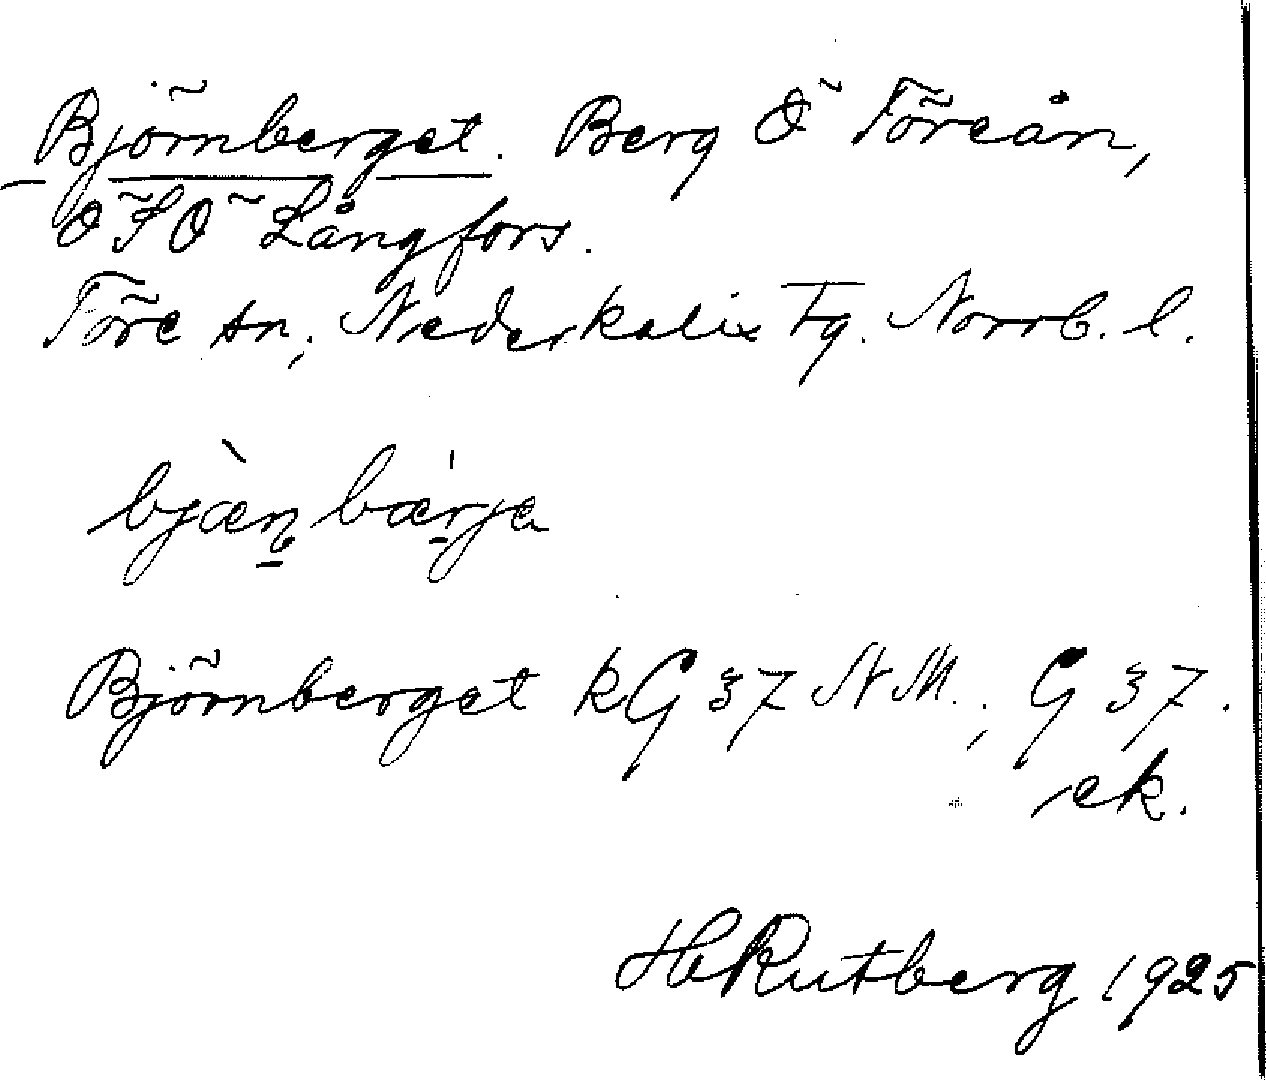 Björnberget. Berg Ö Töreån,
ÖSÖ Långfors.
Töre sn, Nederkalix Tg. Norrb. l.
bjæ̀n bæ̍rjɐ
Björnberget kG 37 NM.; G 37.
ek.
H Rutberg 1925